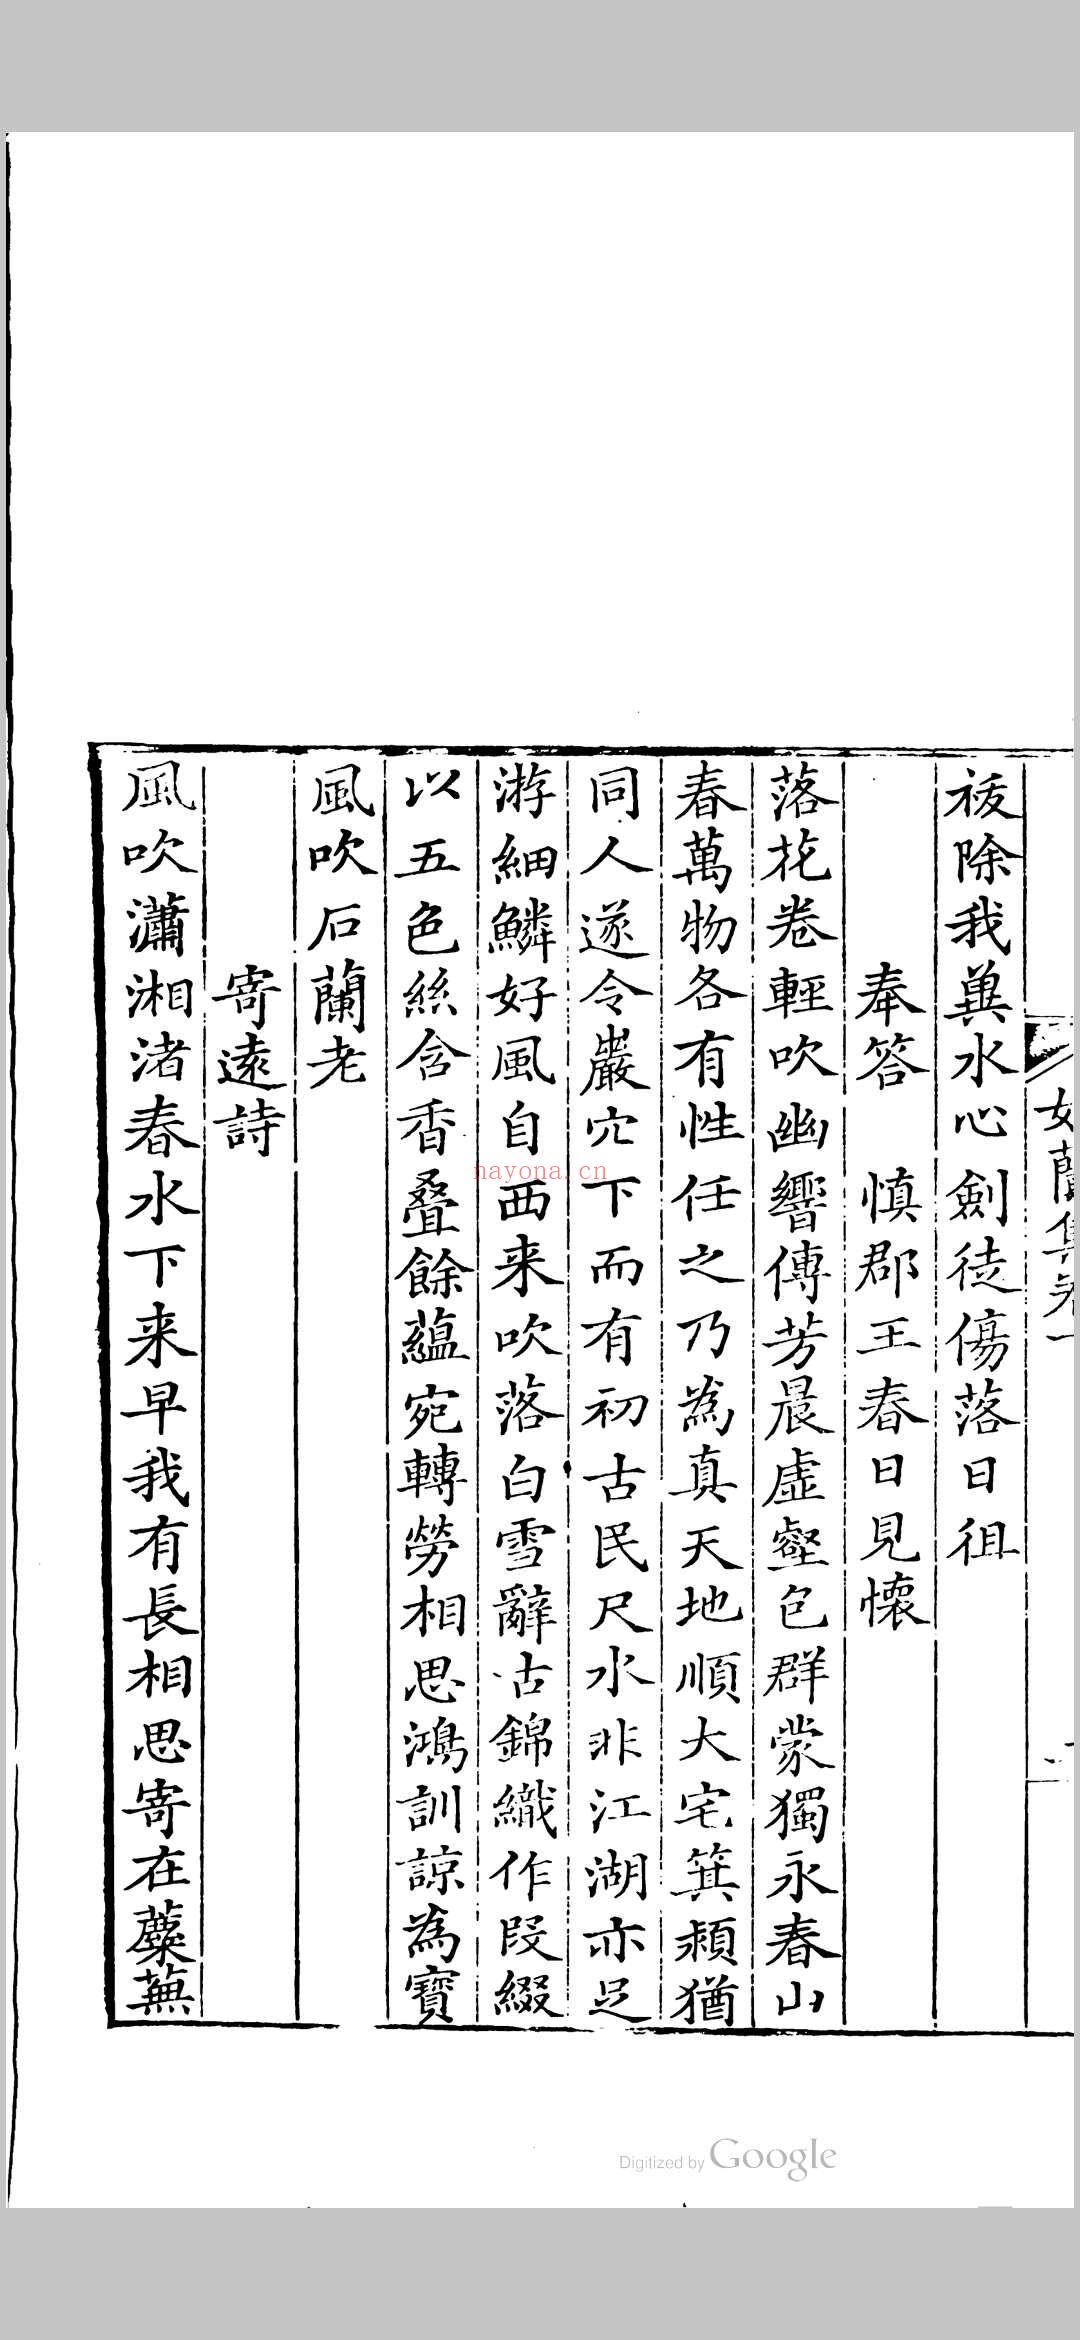 如蘭集卷一
祓除我異水心劍徒傷落日徂
奉答 慎郡王春日見懷
落花卷輕吹幽響傳芳晨虛壑包群蒙獨永春山
春萬物各有性任之乃為真天地順大宅箕潁猶
同人遂令巖穴下而有初古民尺水非江湖亦足
游細鱗好風自西来吹落白雪辭古錦織作段綴
以五色絲含香叠餘蘊宛轉勞相思鴻訓諒為寶
風吹石蘭老
寄遠詩
風吹瀟湘渚春水下来早我有長相思寄在蘼蕪
nayona.cn
Digitized by Google